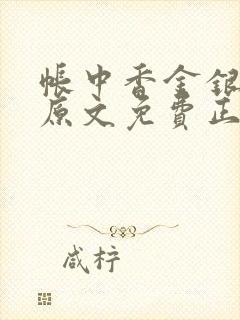 帐中香金银
原文免费正
咸柠